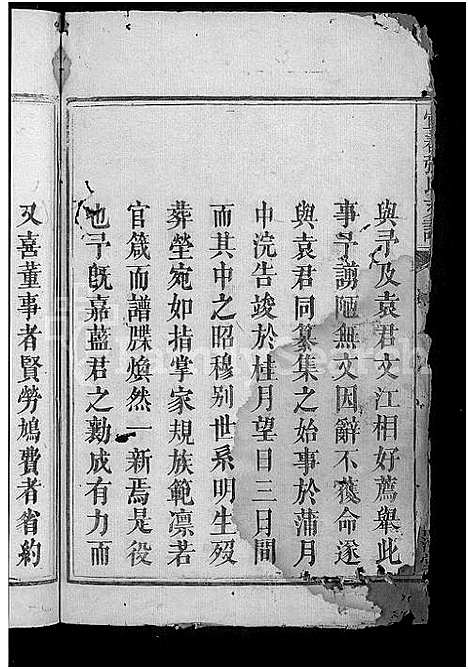 與予及袁君文江相好薦舉此
事予謭陋無文因辭不獲命遂
與袁君同纂集之始事於蒲月
中浣告竣於桂月望日三日間
而其中之昭穆別世系明生歿
葬塋宛如指掌家規族範凛若
官箴而譜牒煥然一新焉是役
也予旣嘉藍君之勷成有力而
又喜董事者賢勞鳩費者省約